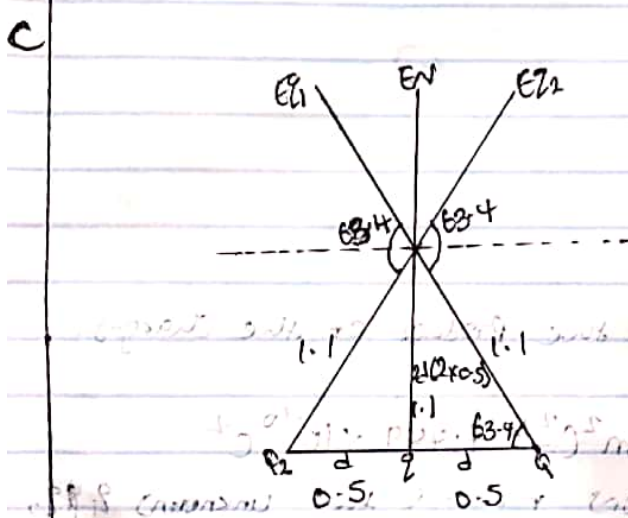 C
Eq1 EN Eq2
63.4 63.4
1.1 1.1
(2×0.5)
1.1 63.4
P2 d q d Q
0.5 0.5